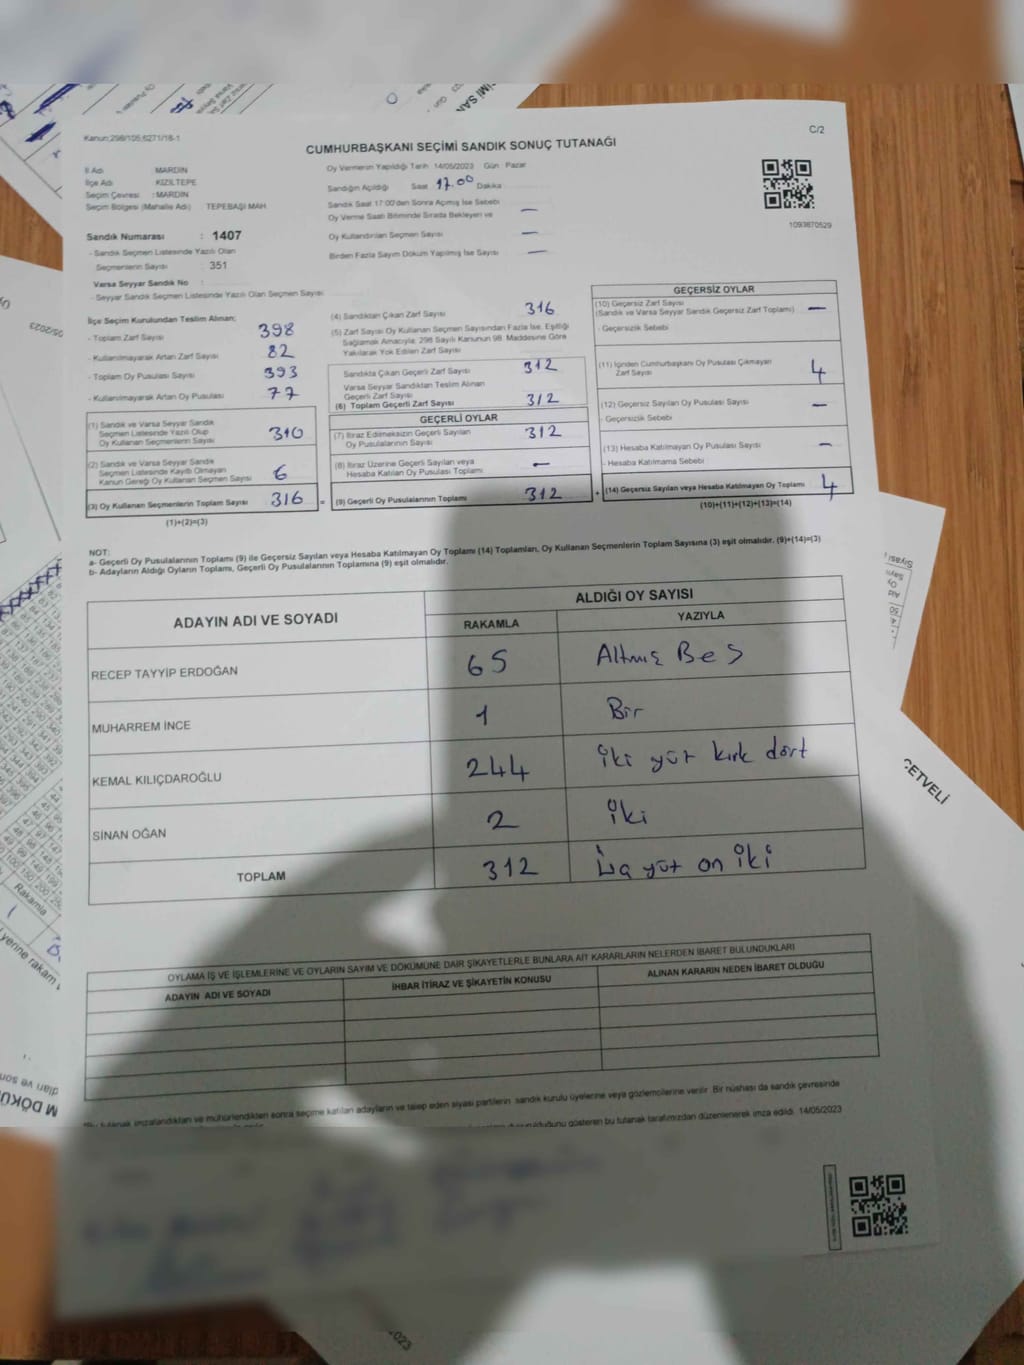 Kanun:298/105,6271/18-1
C/2
CUMHURBAŞKANI SEÇİMİ SANDIK SONUÇ TUTANAĞI
İl Adı MARDİN
İlçe Adı KIZILTEPE
Seçim Çevresi : MARDİN
Seçim Bölgesi (Mahalle Adı) TEPEBAŞI MAH
Sandık Numarası : 1407
- Sandık Seçmen Listesinde Yazılı Olan
Seçmenlerin Sayısı : 351
Varsa Seyyar Sandık No :
- Seyyar Sandık Seçmen Listesinde Yazılı Olan Seçmen Sayısı
Oy Vermenin Yapıldığı Tarih 14/05/2023 Gün : Pazar
Sandığın Açıldığı Saat 17.00 Dakika
Sandık Saat 17:00'den Sonra Açılmış İse Sebebi
Oy Verme Saati Bitiminde Sırada Bekleyen ve —
Oy Kullandırılan Seçmen Sayısı —
Birden Fazla Sayım Döküm Yapılmış İse Sayısı —
1093870529
İlçe Seçim Kurulundan Teslim Alınan;
- Toplam Zarf Sayısı 398
- Kullanılmayarak Artan Zarf Sayısı 82
- Toplam Oy Pusulası Sayısı 393
- Kullanılmayarak Artan Oy Pusulası 77
(1) Sandık ve Varsa Seyyar Sandık
Seçmen Listesinde Yazılı Olup
Oy Kullanan Seçmenlerin Sayısı 310
(2) Sandık ve Varsa Seyyar Sandık
Seçmen Listesinde Kayıtlı Olmayan
Kanun Gereği Oy Kullanan Seçmen Sayısı 6
(3) Oy Kullanan Seçmenlerin Toplam Sayısı 316 =
(1)+(2)=(3)
(4) Sandıktan Çıkan Zarf Sayısı 316
(5) Zarf Sayısı Oy Kullanan Seçmen Sayısından Fazla İse, Eşitliği
Sağlamak Amacıyla; 298 Sayılı Kanunun 98. Maddesine Göre
Yakılarak Yok Edilen Zarf Sayısı
Sandıkta Çıkan Geçerli Zarf Sayısı 312
Varsa Seyyar Sandıktan Teslim Alınan
Geçerli Zarf Sayısı
(6) Toplam Geçerli Zarf Sayısı 312
GEÇERLİ OYLAR
(7) İtiraz Edilmeksizin Geçerli Sayılan
Oy Pusulalarının Sayısı 312
(8) İtiraz Üzerine Geçerli Sayılan veya
Hesaba Katılan Oy Pusulası Toplamı —
(9) Geçerli Oy Pusulalarının Toplamı 312 +
GEÇERSİZ OYLAR
(10) Geçersiz Zarf Sayısı
(Sandık ve Varsa Seyyar Sandık Geçersiz Zarf Toplamı) —
- Geçersizlik Sebebi
(11) İçinden Cumhurbaşkanı Oy Pusulası Çıkmayan
Zarf Sayısı 4
(12) Geçersiz Sayılan Oy Pusulası Sayısı —
- Geçersizlik Sebebi
(13) Hesaba Katılmayan Oy Pusulası Sayısı —
- Hesaba Katılmama Sebebi
(14) Geçersiz Sayılan veya Hesaba Katılmayan Oy Toplamı 4
(10)+(11)+(12)+(13)=(14)
NOT:
a- Geçerli Oy Pusulalarının Toplamı (9) ile Geçersiz Sayılan veya Hesaba Katılmayan Oy Toplamı (14) Toplamları, Oy Kullanan Seçmenlerin Toplam Sayısına (3) eşit olmalıdır. (9)+(14)=(3)
b- Adayların Aldığı Oyların Toplamı, Geçerli Oy Pusulalarının Toplamına (9) eşit olmalıdır.
ADAYIN ADI VE SOYADI ALDIĞI OY SAYISI
RAKAMLA YAZIYLA
RECEP TAYYİP ERDOĞAN 65 Altmış Beş
MUHARREM İNCE 1 Bir
KEMAL KILIÇDAROĞLU 244 iki yüz kırk dört
SİNAN OĞAN 2 iki
TOPLAM 312 üç yüz on iki
OYLAMA İŞ VE İŞLEMLERİNE VE OYLARIN SAYIM VE DÖKÜMÜNE DAİR ŞİKAYETLERLE BUNLARA AİT KARARLARIN NELERDEN İBARET BULUNDUKLARI
ADAYIN ADI VE SOYADI İHBAR İTİRAZ VE ŞİKAYETİN KONUSU ALINAN KARARIN NEDEN İBARET OLDUĞU
*Bu tutanak imzalandıktan ve mühürlendikten sonra seçime katılan adayların ve talep eden siyasi partilerin sandık kurulu üyelerine veya gözlemcilerine verilir. Bir nüshası da sandık çevresinde
gösteren bu tutanak tarafımızdan düzenlenerek imza edildi. 14/05/2023
CETVELİ
Rakamla
yerine rakam